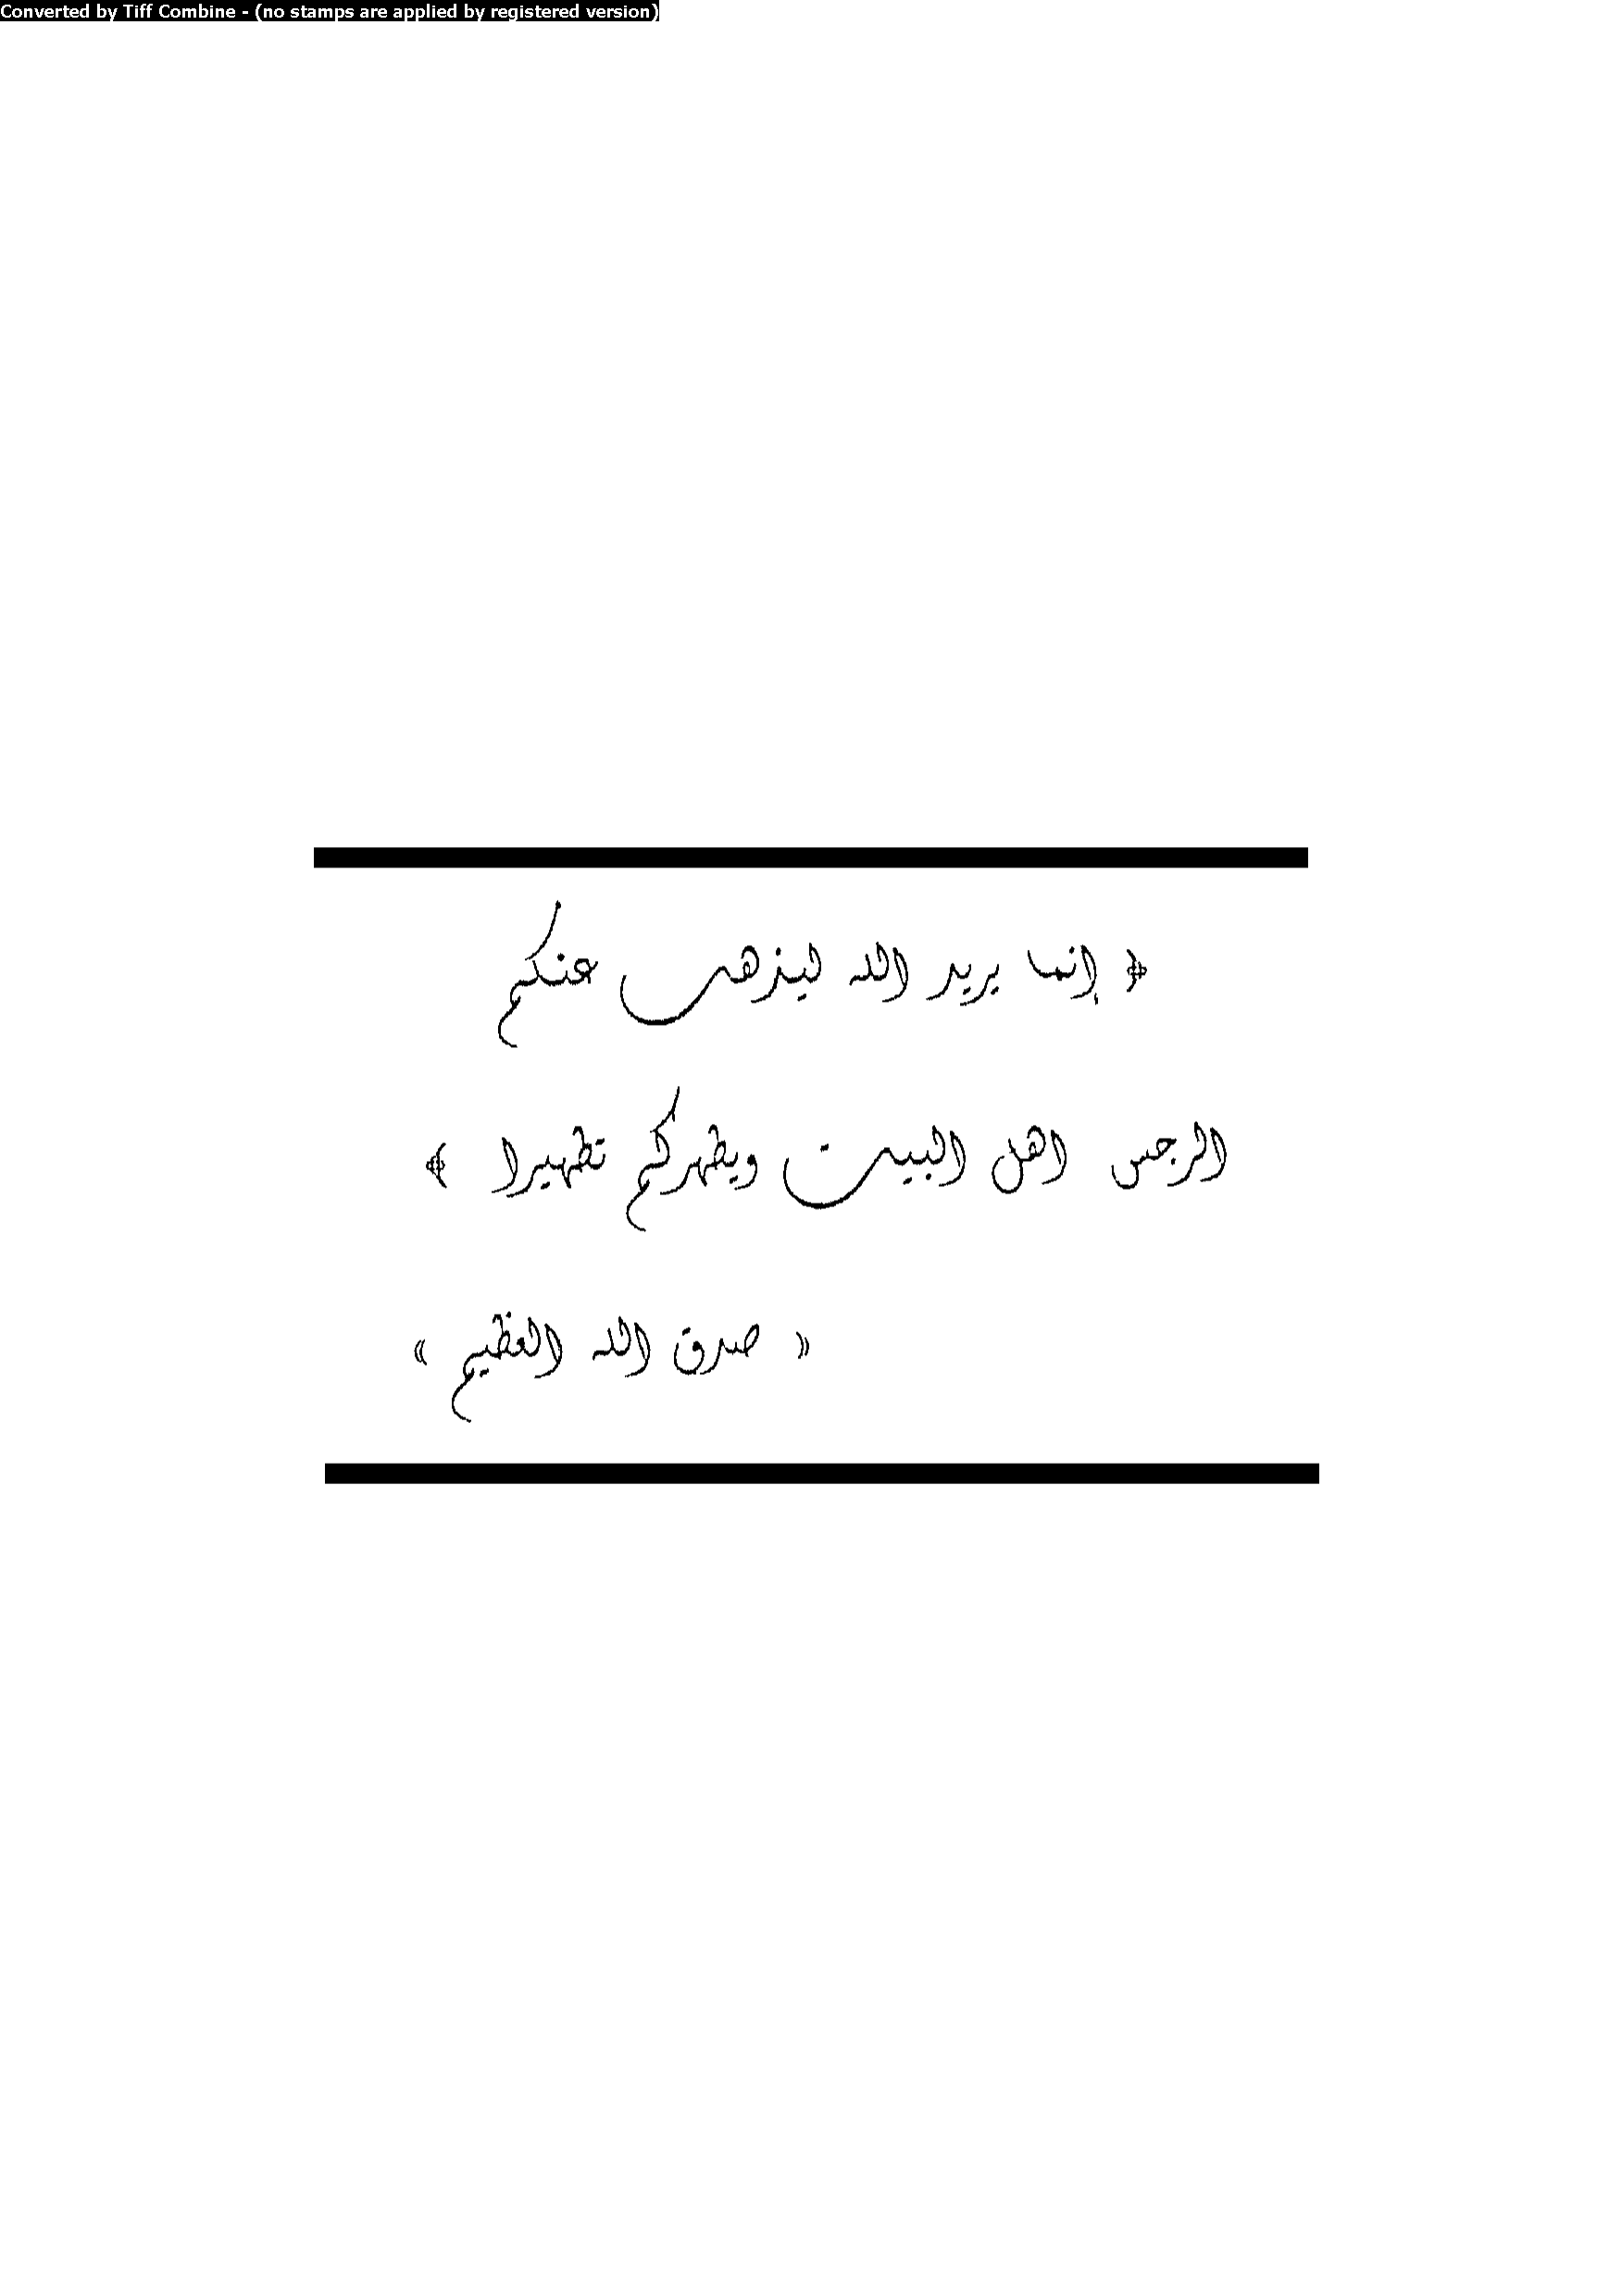 Converted by Tiff Combine - (no stamps are applied by registered version)
﴿ إنما يريد الله ليذهب عنكم
الرجس اهل البيت ويطهركم تطهيرا ﴾
« صدق الله العظيم »